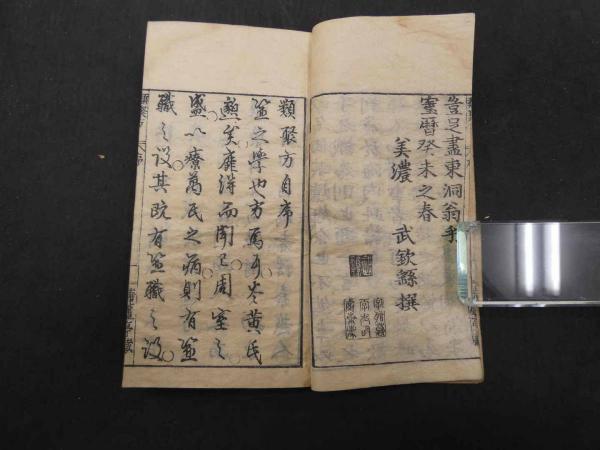 豈足盡東洞翁乎
寶曆癸未之春
美濃 武欽繇撰
類聚方自序
醫之學也方焉耳昔黃氏
邈矣靡得而聞已周室之
盛以療萬民之病則有醫
職之設其既有醫職之設